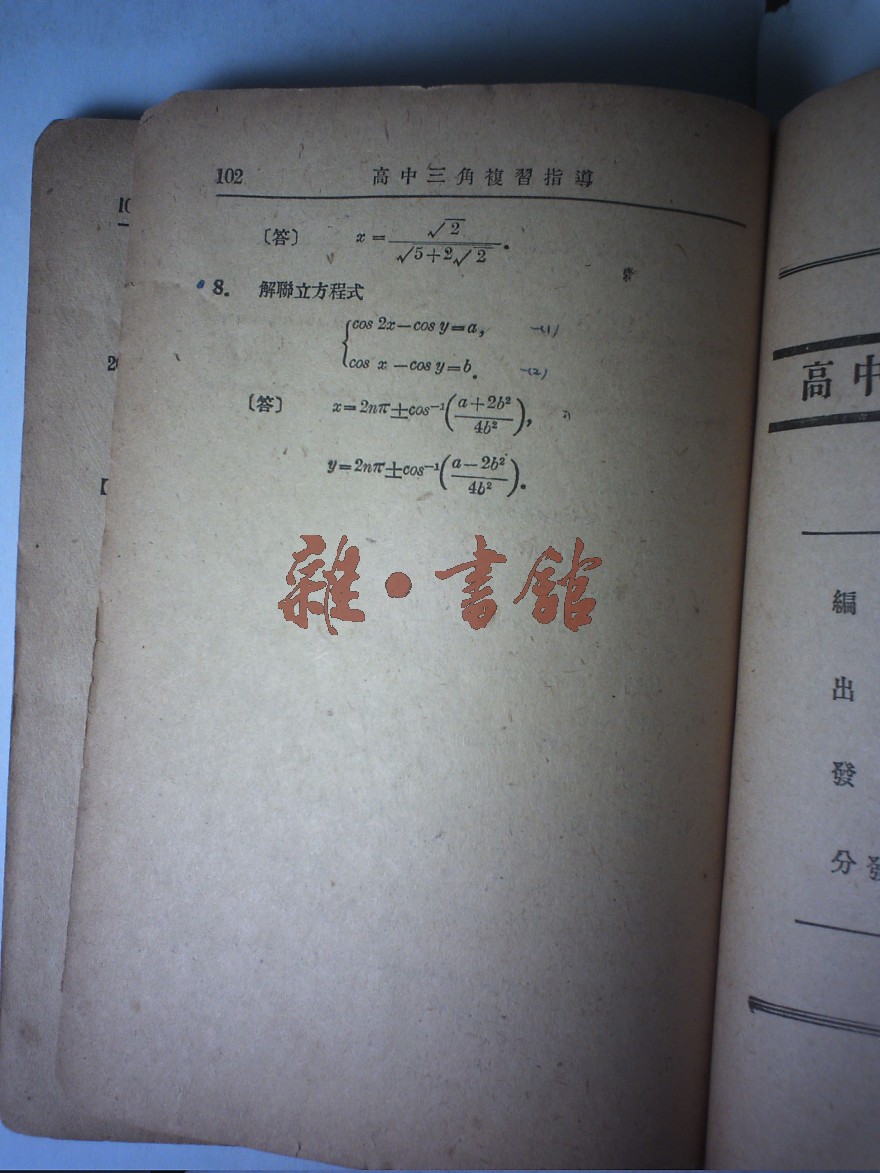 102 高中三角複習指導
〔答〕 x = √2 / √(5+2√2).
8. 解聯立方程式
cos 2x－cos y＝a, —(1)
cos x －cos y＝b. —(2)
〔答〕 x＝2nπ±cos⁻¹((a＋2b²)/4b²),
y＝2nπ±cos⁻¹((a－2b²)/4b²).
雜·書館
10
20
【
高中
編
出
發
分發